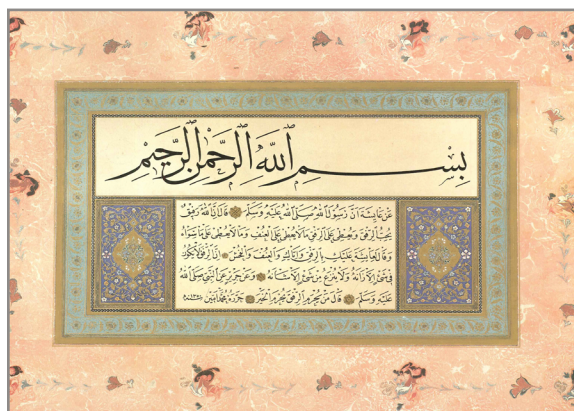 بسم الله الرحمن الرحيم
عن عائشة ان رسول الله صلى الله عليه وسلم قال ان الله رفيق
يحب الرفق ويعطي على الرفق ما لا يعطي على العنف وما لا يعطي على ما سواه
وقال لعائشة عليك بالرفق واياك والعنف والفحش ان الرفق لا يكون
في شيء الا زانه ولا ينزع من شيء الا شانه وعن جرير عن النبي صلى الله
عليه وسلم قال من يحرم الرفق يحرم الخير حرره